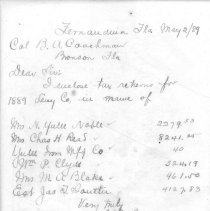 Fernandina Fla May 2/89
Col B. A. Coachman
Bronson Fla
Dear Sir
I inclose tax returns for
1889 Levy Co, in name of
Mrs N. Yulee Noble 2279.83
Mrs Chas H. Best 8241.25
Yulee Imp Mfg Co 40
Wm P. Clyde
Mrs M. A. Blake 461.50
Est Jas T. Soutter 4127.83
Very truly